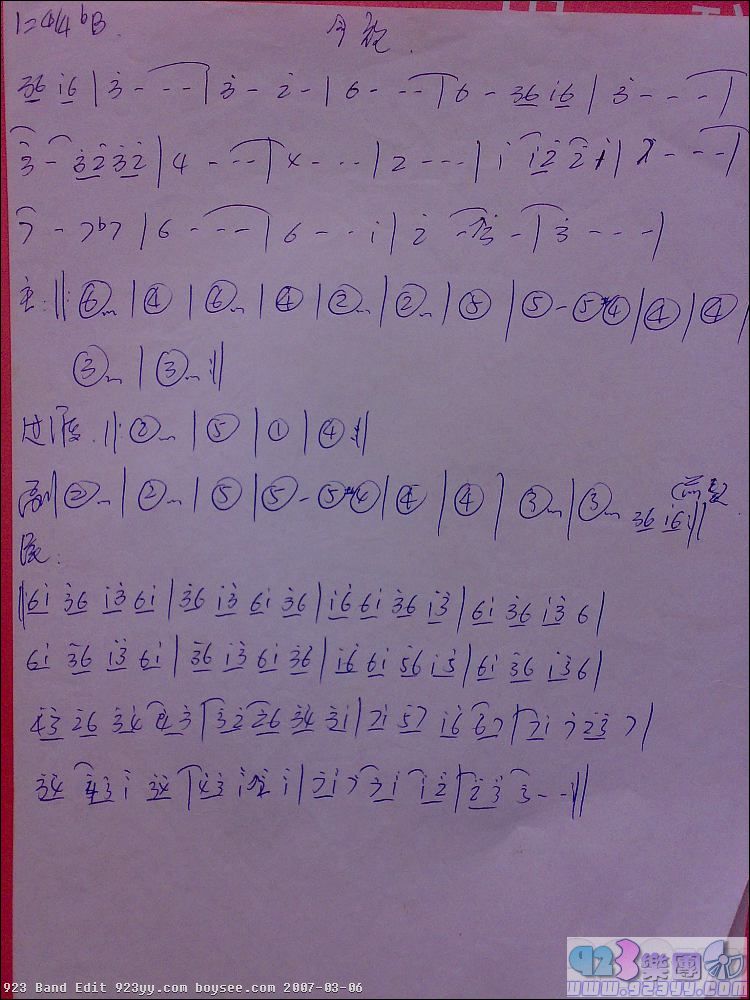 1=4/4 bB 今夜
36 i6 | 3 - - - | 3 - 2 - | 6 - - - | 6 - 36 i6 | 3 - - - |
3 - 3232 | 4 - - - | 4 - - - | 2 - - - | i i2 2i | 7 - - - |
7 - 7b7 | 6 - - - | 6 - - i | 2 - 23 - | 3 - - - |
主: ‖: ⑥m | ④ | ⑥m | ④ | ②m | ②m | ⑤ | ⑤ - ⑤#④ | ④ | ④ |
③m | ③m :‖
过度: ‖: ②m | ⑤ | ① | ④ :‖
②m | ②m | ⑤ | ⑤ - ⑤#④ | ④ | ④ | ③m | ③m 36 i6i ‖
‖ 6i 36 i3 6i | 36 i3 6i 36 | i6 6i 36 i3 | 6i 36 i3 6 |
6i 36 i3 6i | 36 i3 6i 36 | i6 6i 56 i5 | 6i 36 i3 6 |
43 26 34 43 | 32 26 34 3i | 7i 57 i6 67 | 7i 7 23 7 |
34 43 i 34 | 43 i2 i | 7i 7 7i i2 | 23 3 - - ‖
923 Band Edit 923yy.com boysee.com 2007-03-06
923樂團
www.923yy.com